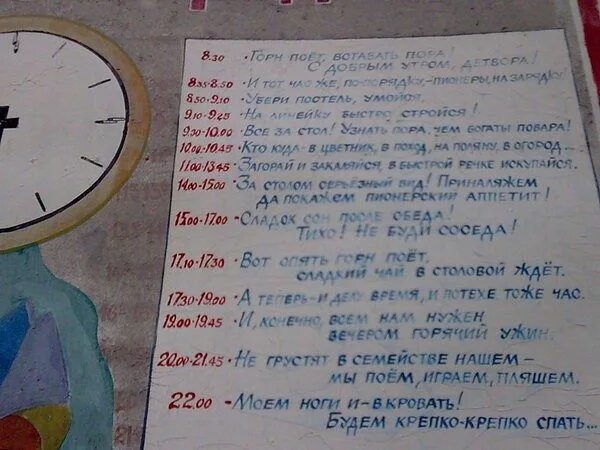 8.30 - Горн поёт, вставать пора!
С добрым утром, детвора!
8.35-8.50 - И тот час же, по-порядку,-пионеры, на зарядку!
8.50-9.10 - Убери постель, умойся,
9.10-9.25 - На линейку быстро стройся!
9.30-10.00 - Все за стол! Узнать пора, чем богаты повара!
10.00-10.45 - Кто куда - в цветник, в поход, на поляну, в огород...
11.00-13.45 - Загорай и закаляйся, в быстрой речке искупайся.
14.00-15.00 - За столом серьёзный вид! Приналяжем
да покажем пионерский аппетит!
15.00-17.00 - Сладок сон после обеда!
Тихо! Не буди соседа!
17.10-17.30 - Вот опять горн поёт,
сладкий чай в столовой ждёт.
17.30-19.00 - А теперь - и делу время, и потехе тоже час.
19.00-19.45 - И, конечно, всем нам нужен
вечером горячий ужин.
20.00-21.45 - Не грустят в семействе нашем —
мы поём, играем, пляшем.
22.00 - Моем ноги и - в кровать!
Будем крепко-крепко спать...